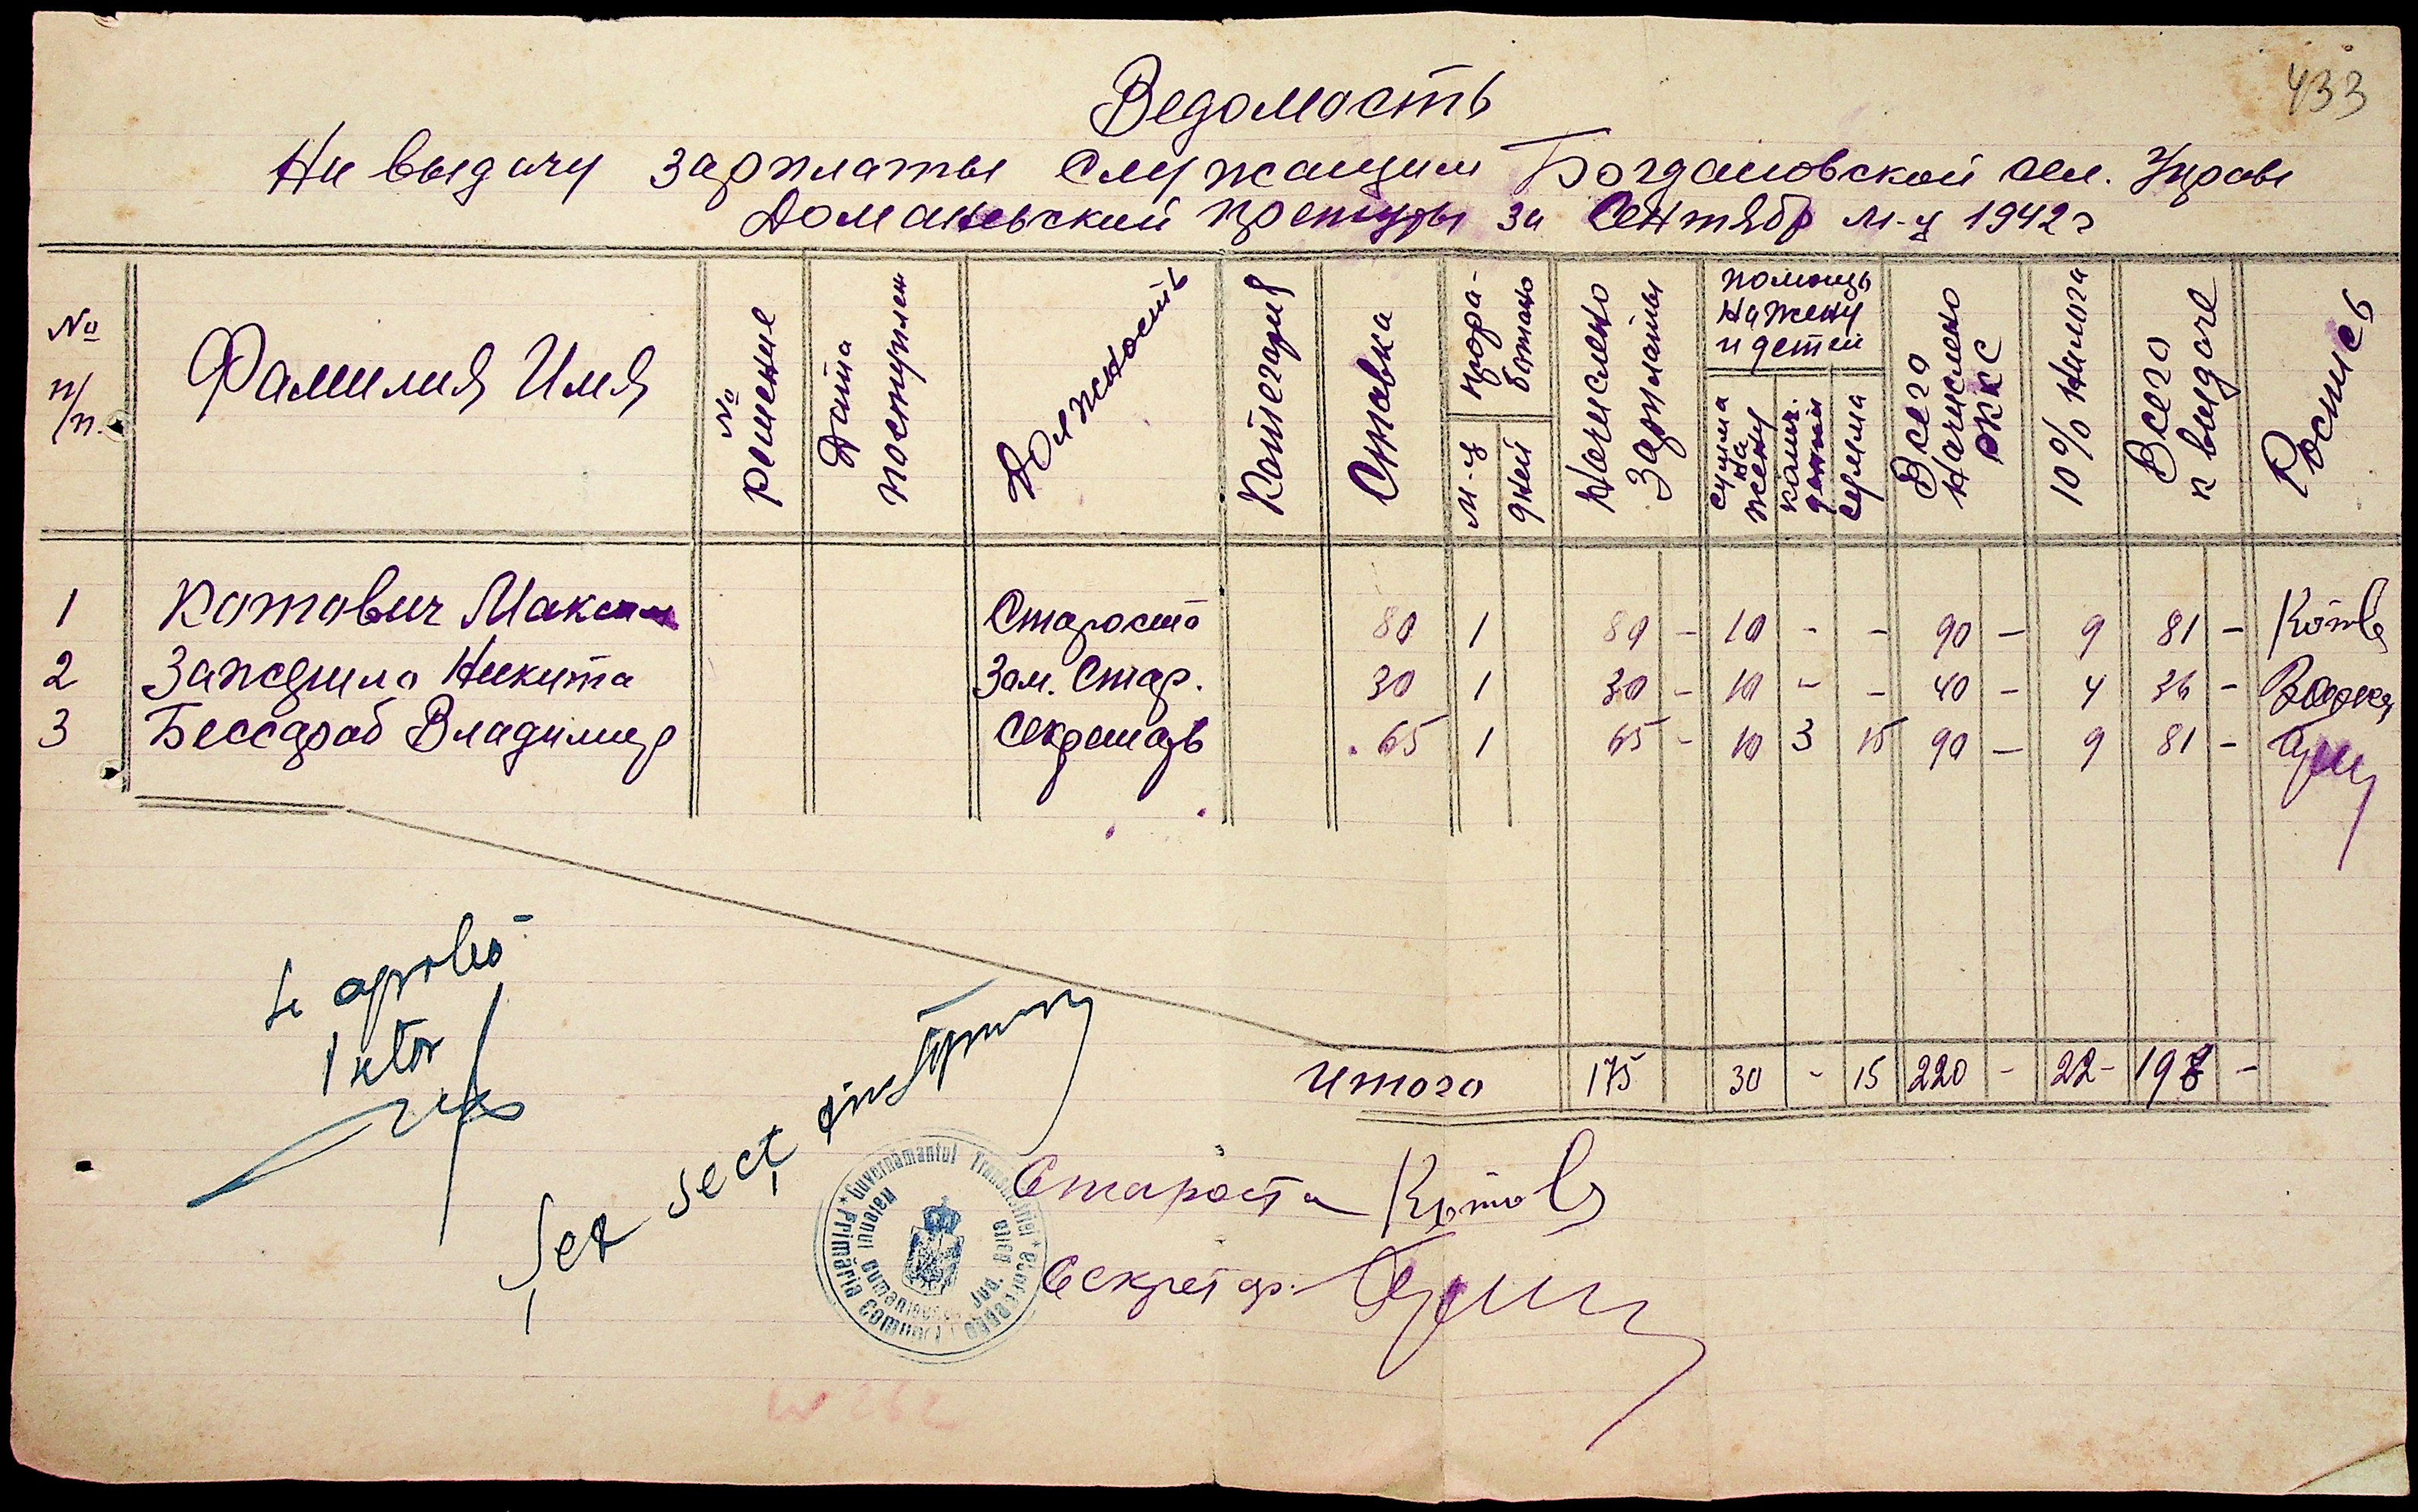 433
Ведомость
На выдачу зарплаты служащим Богдановской сел. Управы
Доманевский претуры за Сентябр м-ц 1942г
№ п/п.
Фамилия Имя
№ решение
Дата поступлен
Должность
Категория
Ставка
прора-ботано
м-ц
дней
Начислено Зарплаты
помощь на жену и детей
сумма на жену
колич. детей
сумма
Всего начислено РККС
10% Налога
Всего к выдаче
Роспись
1 Котович Максим Староста 80 1 80 - 10 - - 90 - 9 81 - Котов
2 Зажерило Никита Зам. Стар. 30 1 30 - 10 - - 40 - 4 36 -
3 Бессараб Владимир Секретарь 65 1 65 - 10 3 15 90 - 9 81 -
Итого 175 30 - 15 220 - 22 - 198 -
Se aprobă
Pretor
Șef secț
Староста Котов
Секретар.
* Guvernământul Transnistriei *
Primăria Comunei
Raionul Dumanievca